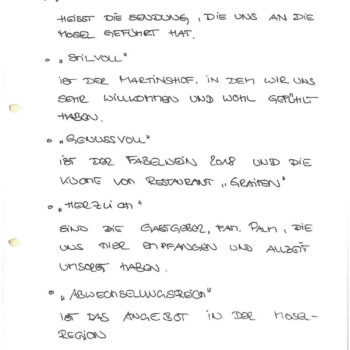 HEISST DIE SENDUNG, DIE UNS AN DIE
MOSEL GEFÜHRT HAT.
• „STILVOLL"
IST DER MARTINSHOF, IN DEM WIR UNS
SEHR WILLKOMMEN UND WOHL GEFÜHLT
HABEN.
• „GENUSSVOLL"
IST DER FABELWEIN 2018 UND DIE
KÜCHE VOM RESTAURANT „GRAIFEN"
• „HERZLICH"
SIND DIE GASTGEBER, FAM. PALM, DIE
UNS HIER EMPFANGEN UND ALLZEIT
UMSORGT HABEN.
• „ABWECHSELUNGSREICH"
IST DAS ANGEBOT IN DER MOSEL-
REGION